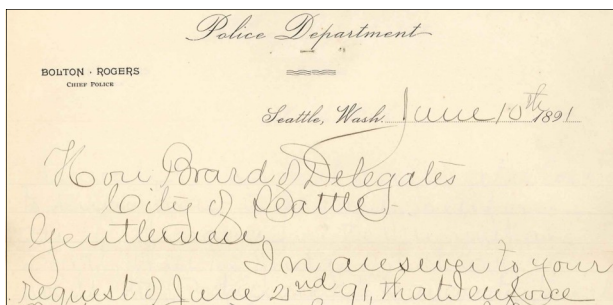 Police Department
BOLTON · ROGERS
CHIEF POLICE
Seattle, Wash. June 10th 1891
Hon Board of Delegates
City of Seattle
Gentlemen
In answer to your
request of June 2nd 91, that I enforce